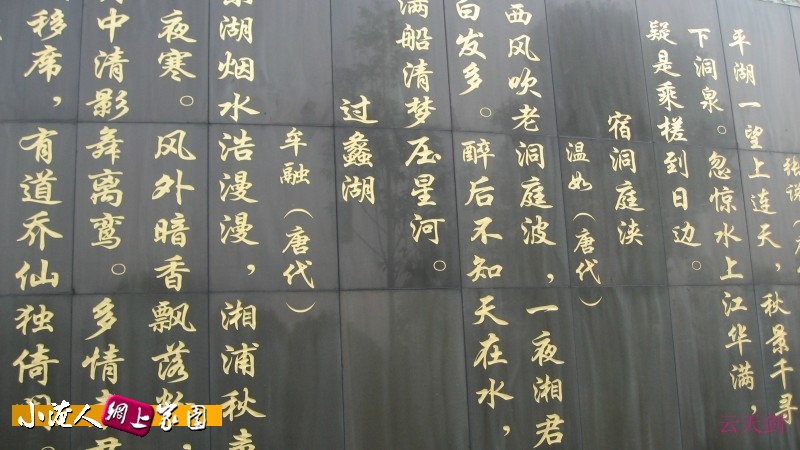 张说（
平湖一望上连天，秋景千寻
下洞泉。忽惊水上江华满，
疑是乘槎到日边。
宿洞庭浃
温如（唐代）
西风吹老洞庭波，一夜湘君
白发多。醉后不知天在水，
满船清梦压星河。
过蠡湖
牟融（唐代）
湖烟水浩漫漫，湘浦秋声
夜寒。风外暗香飘落粉，
中清影舞离鸾。多情 君
移席，有道乔仙独倚
小渔人網上家园